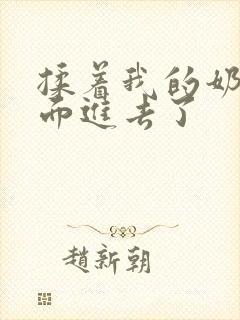 揉着我的奶
而進去了
趙新朝